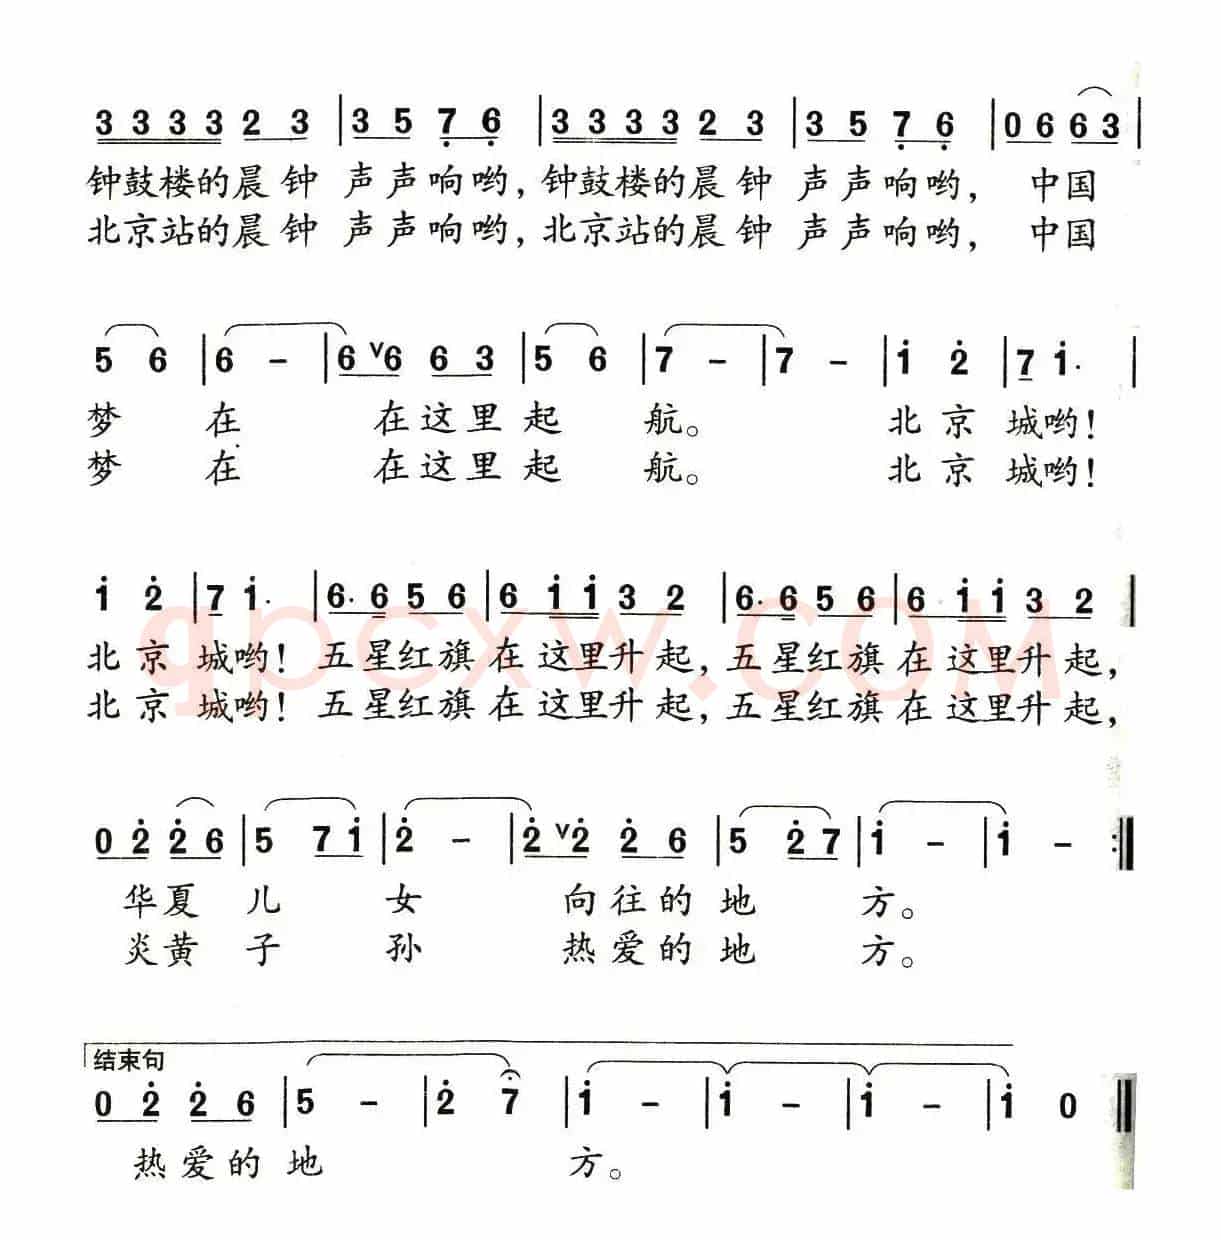 3 3 3 3 2 3 | 3 5 7 6 | 3 3 3 3 2 3 | 3 5 7 6 | 0 6 6 3 |
钟鼓楼的晨钟 声声响哟，钟鼓楼的晨钟 声声响哟， 中国
北京站的晨钟 声声响哟，北京站的晨钟 声声响哟， 中国
5 6 | 6 - | 6 ∨6 6 3 | 5 6 | 7 - | 7 - | 1 2 | 7 1· |
梦 在 在这里起 航。 北京 城哟！
梦 在 在这里起 航。 北京 城哟！
1 2 | 7 1· | 6· 6 5 6 | 6 1 1 3 2 | 6· 6 5 6 | 6 1 1 3 2 |
北京 城哟！ 五星红旗在这里升起，五星红旗在这里升起，
北京 城哟！ 五星红旗在这里升起，五星红旗在这里升起，
qpcxw.com
0 2 2 6 | 5 7 1 | 2 - | 2 ∨2 2 6 | 5 2 7 | 1 - | 1 - :‖
华夏儿 女 向往的地 方。
炎黄子 孙 热爱的地 方。
结束句
0 2 2 6 | 5 - | 2 7 | 1 - | 1 - | 1 - | 1 0 ‖
热爱的地 方。